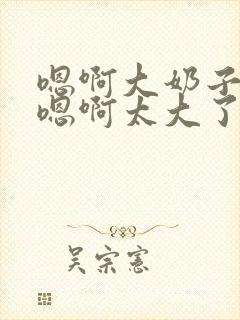 嗯啊大奶子
嗯啊太大了
吴宗宪